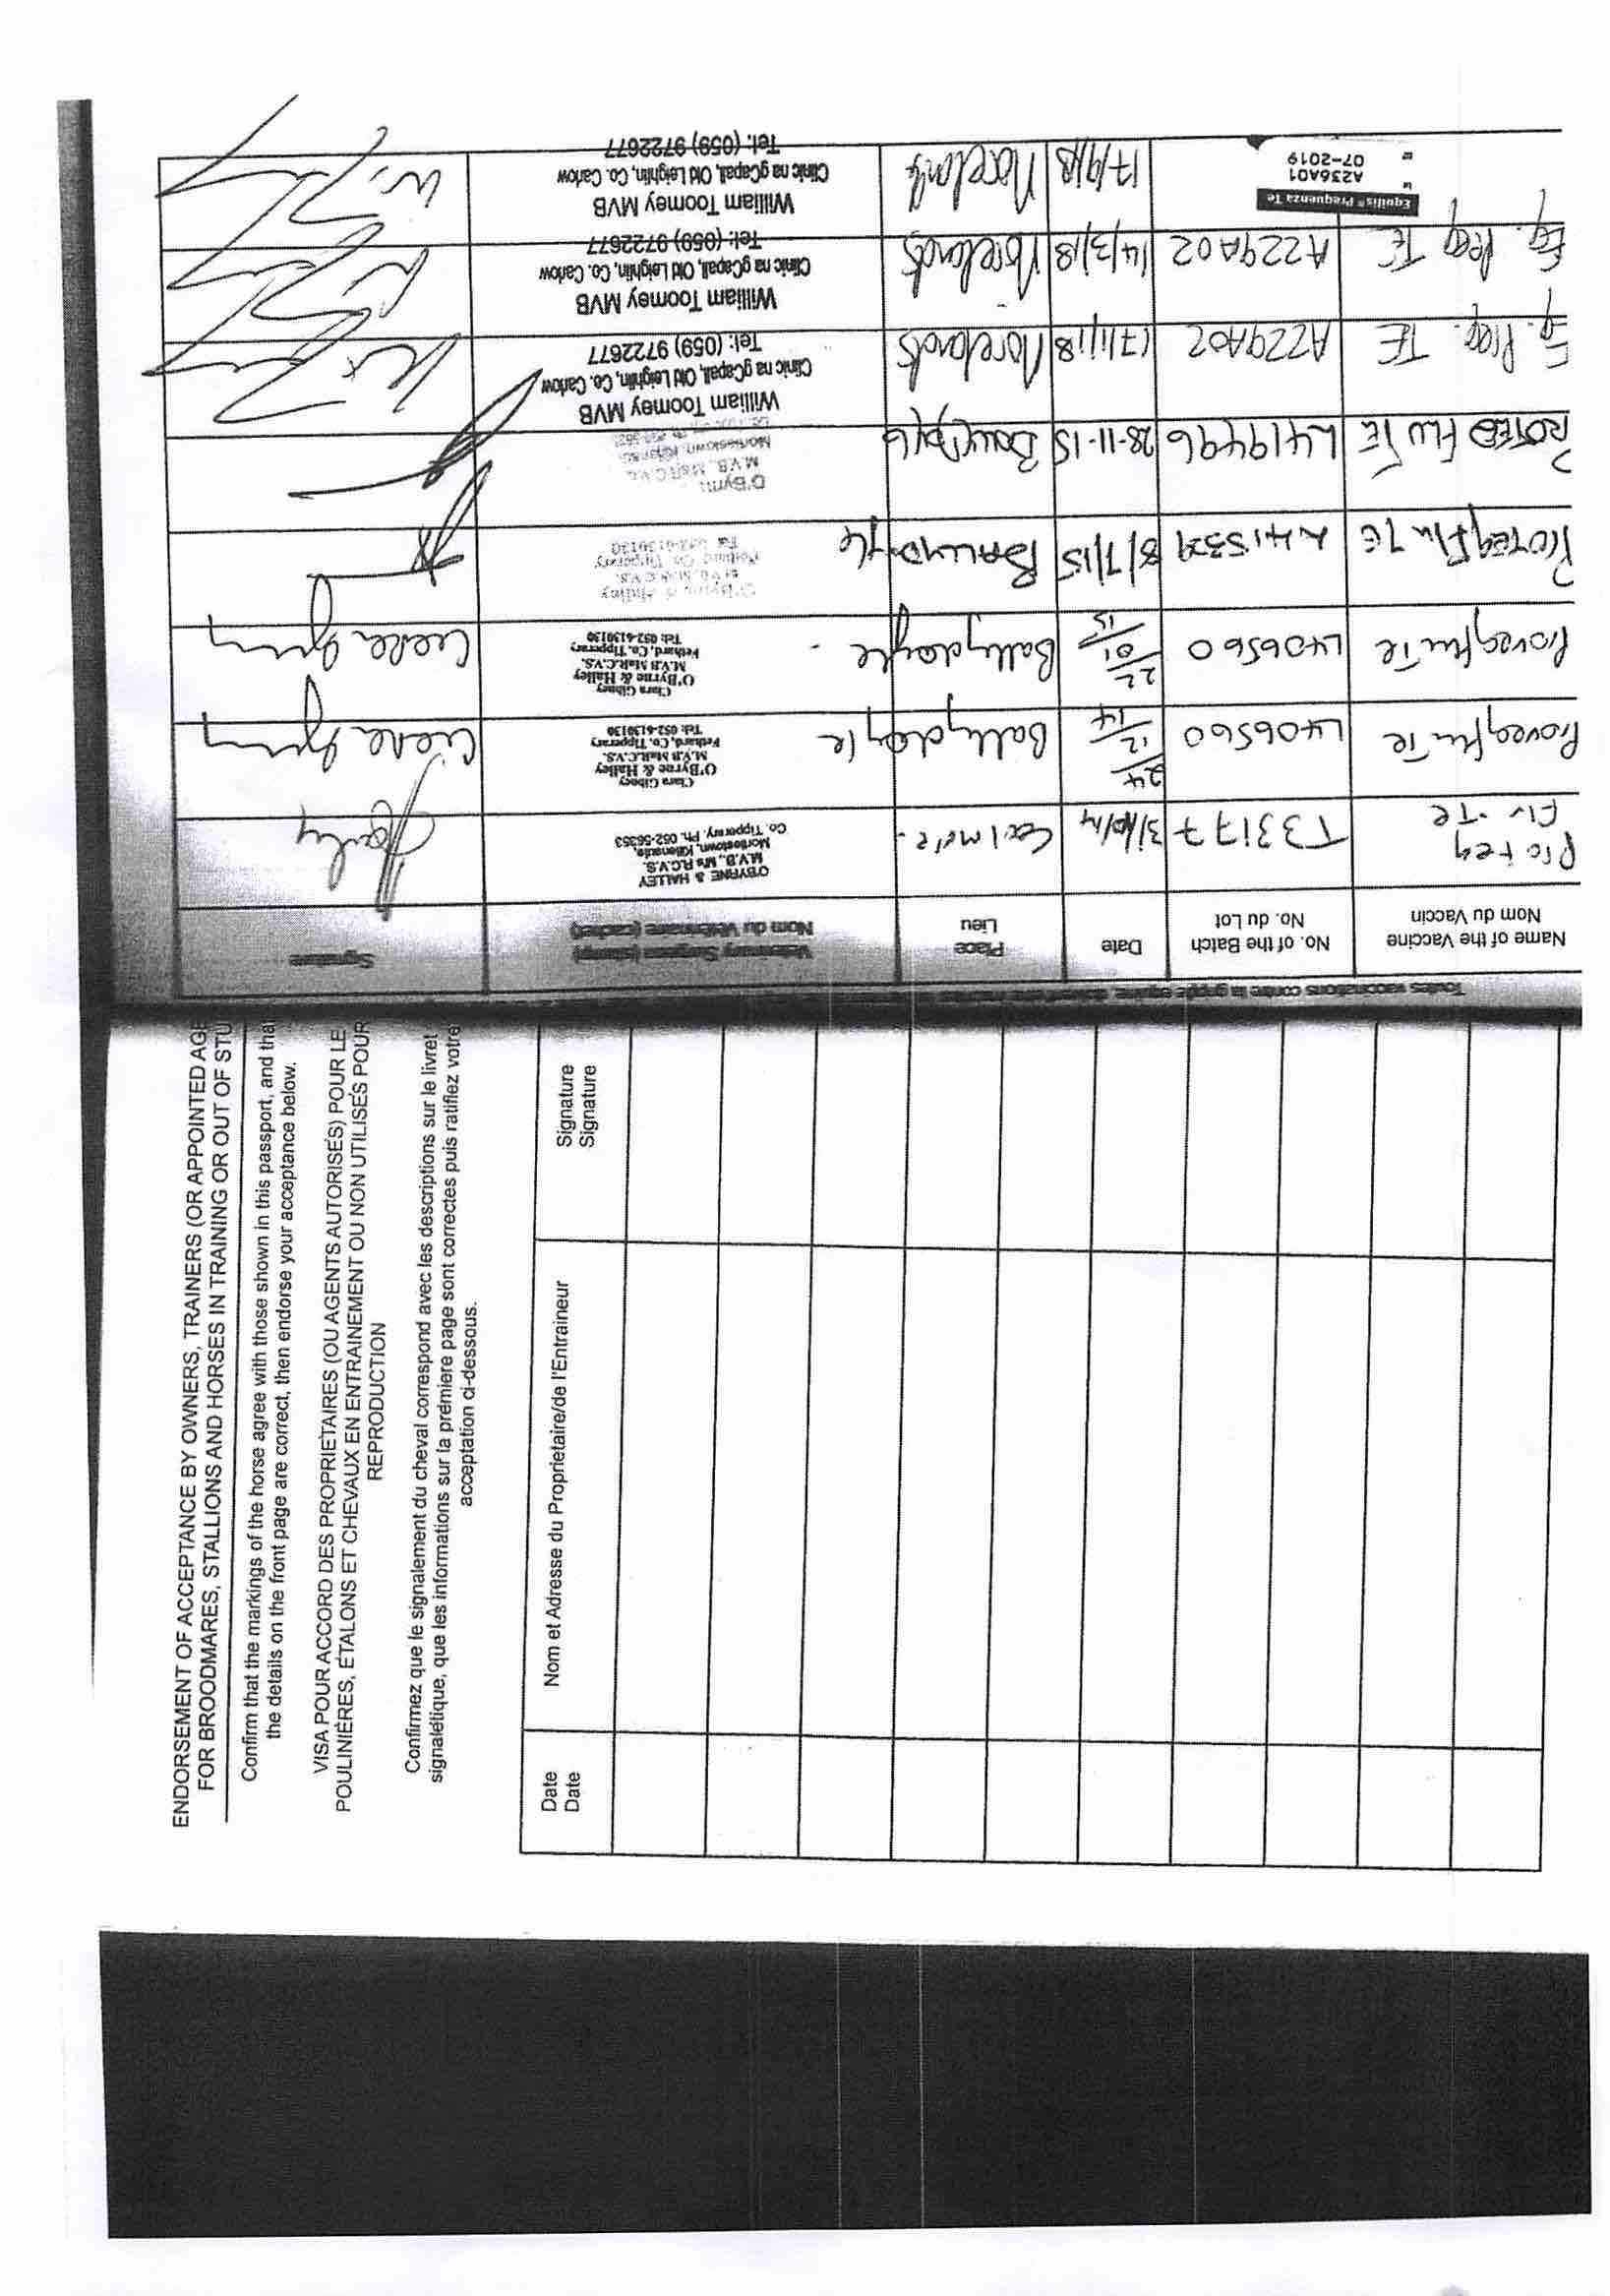 Toutes vaccinations contre la grippe equine,
Name of the Vaccine
Nom du Vaccin
No. of the Batch
No. du Lot
Date
Place
Lieu
Veterinary Surgeon (stamp)
Nom du Vétérinaire (cachet)
Signature
Proteq
Flu-Te
T33177
O'BYRNE & HALLEY
M.V.B., Ms R.C.V.S.
Mortlestown, Killenaule,
Co. Tipperary. Ph. 052-56353
Proteqflu Te
L406560
24
12
14
Ballydoyle
Ciara Gibney
O'Byrne & Halley
M.V.B MsR.C.V.S.
Fethard, Co. Tipperary
Tel: 052-6130130
Proteqflu Te
L406560
22
01
15
Ballydoyle
Ciara Gibney
O'Byrne & Halley
M.V.B MsR.C.V.S.
Fethard, Co. Tipperary
Tel: 052-6130130
PROTEQ Flu TE
8/7/15
BALLYDOYLE
O'Byrne & Halley
Fethard Co. Tipperary
PROTEQ FLU TE
L419496
28-11-15
O'Byrne
M.V.B.
Eq. Preq. TE
A229A02
17/1/18
Morelands
William Toomey MVB
Clinic na gCapall, Old Leighlin, Co. Carlow
Tel: (059) 9722677
Eq. Preq TE
A229A02
14/3/18
Morelands
William Toomey MVB
Clinic na gCapall, Old Leighlin, Co. Carlow
Tel: (059) 9722677
Equilis® Prequenza Te
A236A01
07-2019
17/9/18
William Toomey MVB
Clinic na gCapall, Old Leighlin, Co. Carlow
Tel: (059) 9722677
ENDORSEMENT OF ACCEPTANCE BY OWNERS, TRAINERS (OR APPOINTED
FOR BROODMARES, STALLIONS AND HORSES IN TRAINING OR OUT OF
Confirm that the markings of the horse agree with those shown in this passport, and that
the details on the front page are correct, then endorse your acceptance below.
VISA POUR ACCORD DES PROPRIETAIRES (OU AGENTS AUTORISÉS) POUR LE
POULINIÈRES, ÉTALONS ET CHEVAUX EN ENTRAINEMENT OU NON UTILISÉS POUR
REPRODUCTION
Confirmez que le signalement du cheval correspond avec les descriptions sur le livret
signalétique, que les informations sur la première page sont correctes puis ratifiez votre
acceptation ci-dessous.
Date
Date
Nom et Adresse du Proprietaire/de l'Entraineur
Signature
Signature